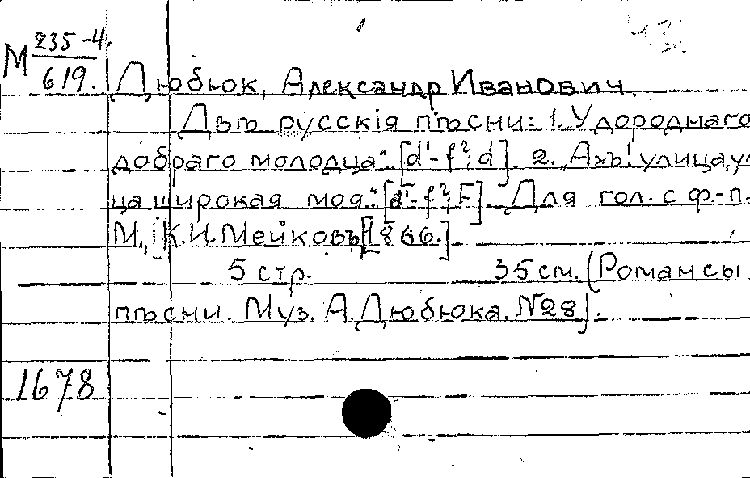 М 235-4
619.
Дюбюк, Александр Иванович.
Двѣ русскія пѣсни: 1. У дороднаго
добраго молодца". [d'-f²; d]. 2. „Ахъ! улица, ули
ца широкая моя." [d'-f²; F]. Для гол. с ф.-п.
М., К.И. Мейковъ [1866.]
5 стр. 35 см. (Романсы.
пѣсни. Муз. А Дюбюка. №28).
1678